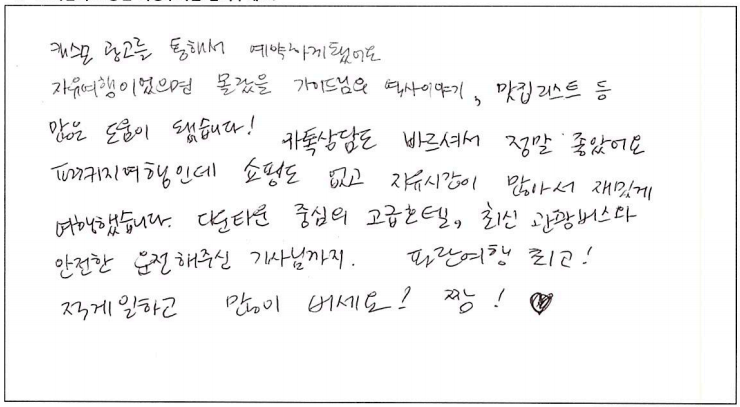 캐스모 광고를 통해서 예약하게됐어요
자유여행이었으면 몰랐을 가이드님의 역사이야기, 맛집리스트 등
많은 도움이 됐습니다! 카톡상담도 빠르셔서 정말 좋았어요
패키지여행인데 쇼핑도 없고 자유시간이 많아서 재밌게
여행했습니다. 다운타운 중심의 고급호텔, 최신 관광버스와
안전한 운전해주신 기사님까지. 파란여행 최고!
적게일하고 많이 버세요! 짱! ♥